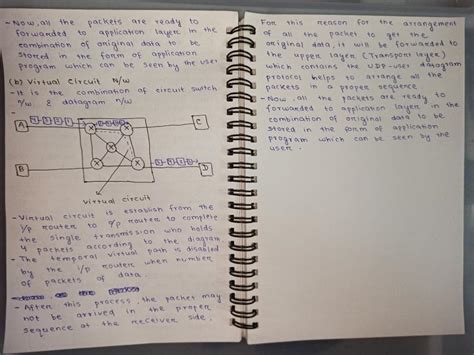 - Now, all the packets are ready to
forwarded to application layer in the
combination of original data to be
stored in the form of application
program which can be seen by the user
(b) Virtual Circuit N/w
- It is the combination of circuit switch
N/w & datagram N/w
A
C
B
D
virtual circuit
- Virtual circuit is establish from the
I/p router to O/p router to complete
the single transmission who holds
4 packets according to the diagram
- The temporal virtual path is disabled
by the I/p router when number
of packets of data.
- After this process, the packet may
not be arrived in the proper
sequence at the receiver side.
For this reason for the arrangement
of all the packet to get the
original data, it will be forwarded to
the upper layer (Transport layer)
which contains the UDP-user datagram
protocol helps to arrange all the
packets in a proper sequence
- Now, all the packets are ready to
forwarded to application layer in the
combination of original data to be
stored in the form of application
program which can be seen by the
user.